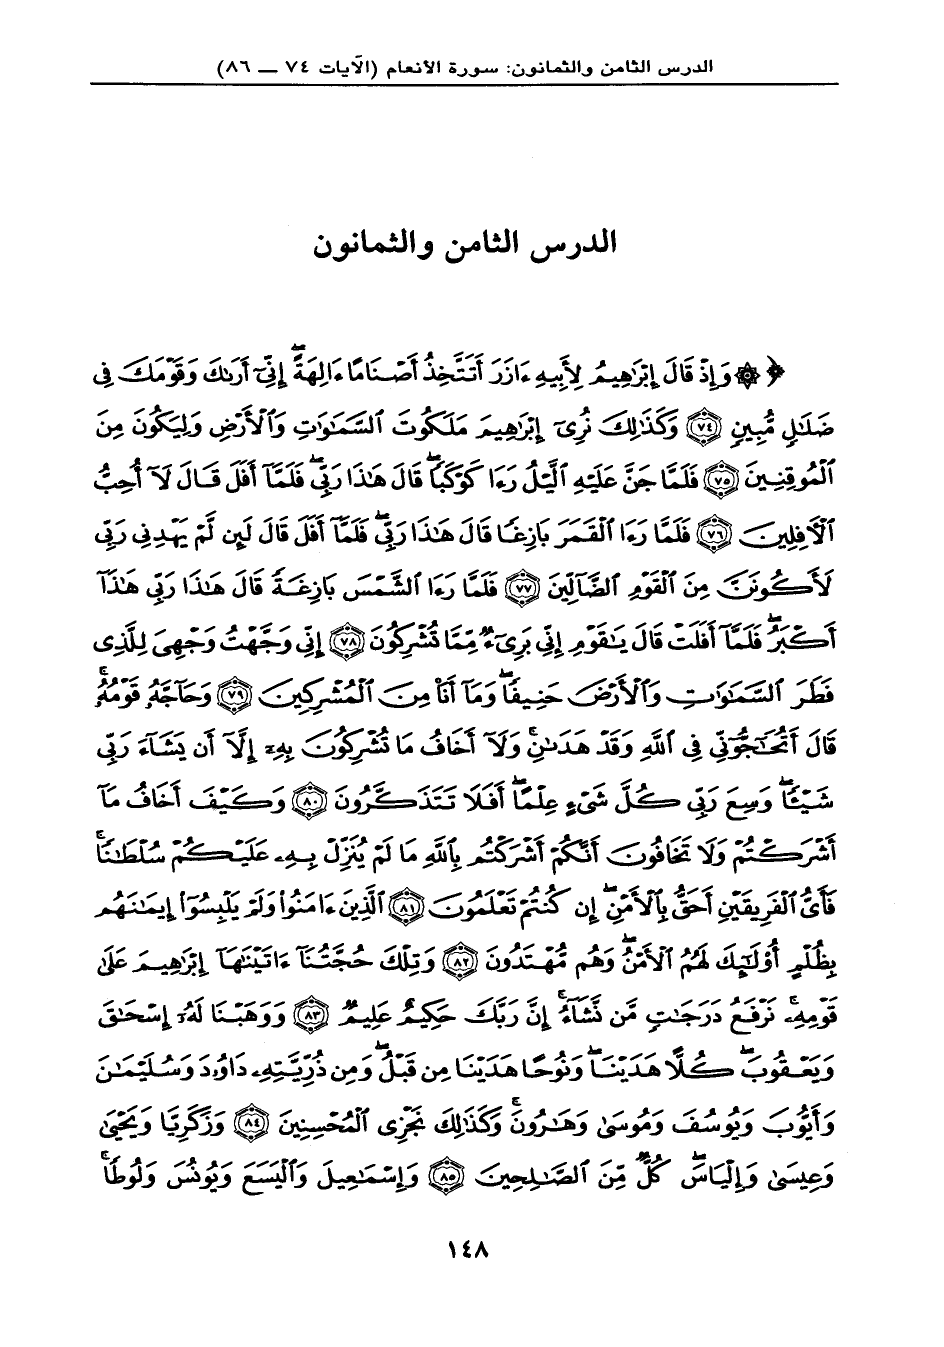 الدرس الثامن والثمانون: سورة الأنعام (الآيات ٧٤ — ٨٦)
الدرس الثامن والثمانون
﴿ ۞ وَإِذْ قَالَ إِبْرَٰهِيمُ لِأَبِيهِ ءَازَرَ أَتَتَّخِذُ أَصْنَامًا ءَالِهَةً ۖ إِنِّىٓ أَرَىٰكَ وَقَوْمَكَ فِى
ضَلَٰلٍ مُّبِينٍ ﴿٧٤﴾ وَكَذَٰلِكَ نُرِىٓ إِبْرَٰهِيمَ مَلَكُوتَ ٱلسَّمَٰوَٰتِ وَٱلْأَرْضِ وَلِيَكُونَ مِنَ
ٱلْمُوقِنِينَ ﴿٧٥﴾ فَلَمَّا جَنَّ عَلَيْهِ ٱلَّيْلُ رَءَا كَوْكَبًا ۖ قَالَ هَٰذَا رَبِّى ۖ فَلَمَّآ أَفَلَ قَالَ لَآ أُحِبُّ
ٱلْأٓفِلِينَ ﴿٧٦﴾ فَلَمَّا رَءَا ٱلْقَمَرَ بَازِغًا قَالَ هَٰذَا رَبِّى ۖ فَلَمَّآ أَفَلَ قَالَ لَئِن لَّمْ يَهْدِنِى رَبِّى
لَأَكُونَنَّ مِنَ ٱلْقَوْمِ ٱلضَّآلِّينَ ﴿٧٧﴾ فَلَمَّا رَءَا ٱلشَّمْسَ بَازِغَةً قَالَ هَٰذَا رَبِّى هَٰذَآ
أَكْبَرُ ۖ فَلَمَّآ أَفَلَتْ قَالَ يَٰقَوْمِ إِنِّى بَرِىٓءٌ مِّمَّا تُشْرِكُونَ ﴿٧٨﴾ إِنِّى وَجَّهْتُ وَجْهِىَ لِلَّذِى
فَطَرَ ٱلسَّمَٰوَٰتِ وَٱلْأَرْضَ حَنِيفًا ۖ وَمَآ أَنَا۠ مِنَ ٱلْمُشْرِكِينَ ﴿٧٩﴾ وَحَآجَّهُۥ قَوْمُهُۥ ۚ
قَالَ أَتُحَٰٓجُّوٓنِّى فِى ٱللَّهِ وَقَدْ هَدَىٰنِ ۚ وَلَآ أَخَافُ مَا تُشْرِكُونَ بِهِۦٓ إِلَّآ أَن يَشَآءَ رَبِّى
شَيْـًٔا ۗ وَسِعَ رَبِّى كُلَّ شَىْءٍ عِلْمًا ۗ أَفَلَا تَتَذَكَّرُونَ ﴿٨٠﴾ وَكَيْفَ أَخَافُ مَآ
أَشْرَكْتُمْ وَلَا تَخَافُونَ أَنَّكُمْ أَشْرَكْتُم بِٱللَّهِ مَا لَمْ يُنَزِّلْ بِهِۦ عَلَيْكُمْ سُلْطَٰنًا ۚ
فَأَىُّ ٱلْفَرِيقَيْنِ أَحَقُّ بِٱلْأَمْنِ ۖ إِن كُنتُمْ تَعْلَمُونَ ﴿٨١﴾ ٱلَّذِينَ ءَامَنُوا۟ وَلَمْ يَلْبِسُوٓا۟ إِيمَٰنَهُم
بِظُلْمٍ أُو۟لَٰٓئِكَ لَهُمُ ٱلْأَمْنُ ۖ وَهُم مُّهْتَدُونَ ﴿٨٢﴾ وَتِلْكَ حُجَّتُنَآ ءَاتَيْنَٰهَآ إِبْرَٰهِيمَ عَلَىٰ
قَوْمِهِۦ ۚ نَرْفَعُ دَرَجَٰتٍ مَّن نَّشَآءُ ۗ إِنَّ رَبَّكَ حَكِيمٌ عَلِيمٌ ﴿٨٣﴾ وَوَهَبْنَا لَهُۥٓ إِسْحَٰقَ
وَيَعْقُوبَ ۚ كُلًّا هَدَيْنَا ۚ وَنُوحًا هَدَيْنَا مِن قَبْلُ ۖ وَمِن ذُرِّيَّتِهِۦ دَاوُۥدَ وَسُلَيْمَٰنَ
وَأَيُّوبَ وَيُوسُفَ وَمُوسَىٰ وَهَٰرُونَ ۚ وَكَذَٰلِكَ نَجْزِى ٱلْمُحْسِنِينَ ﴿٨٤﴾ وَزَكَرِيَّا وَيَحْيَىٰ
وَعِيسَىٰ وَإِلْيَاسَ ۖ كُلٌّ مِّنَ ٱلصَّٰلِحِينَ ﴿٨٥﴾ وَإِسْمَٰعِيلَ وَٱلْيَسَعَ وَيُونُسَ وَلُوطًا ۚ
١٤٨